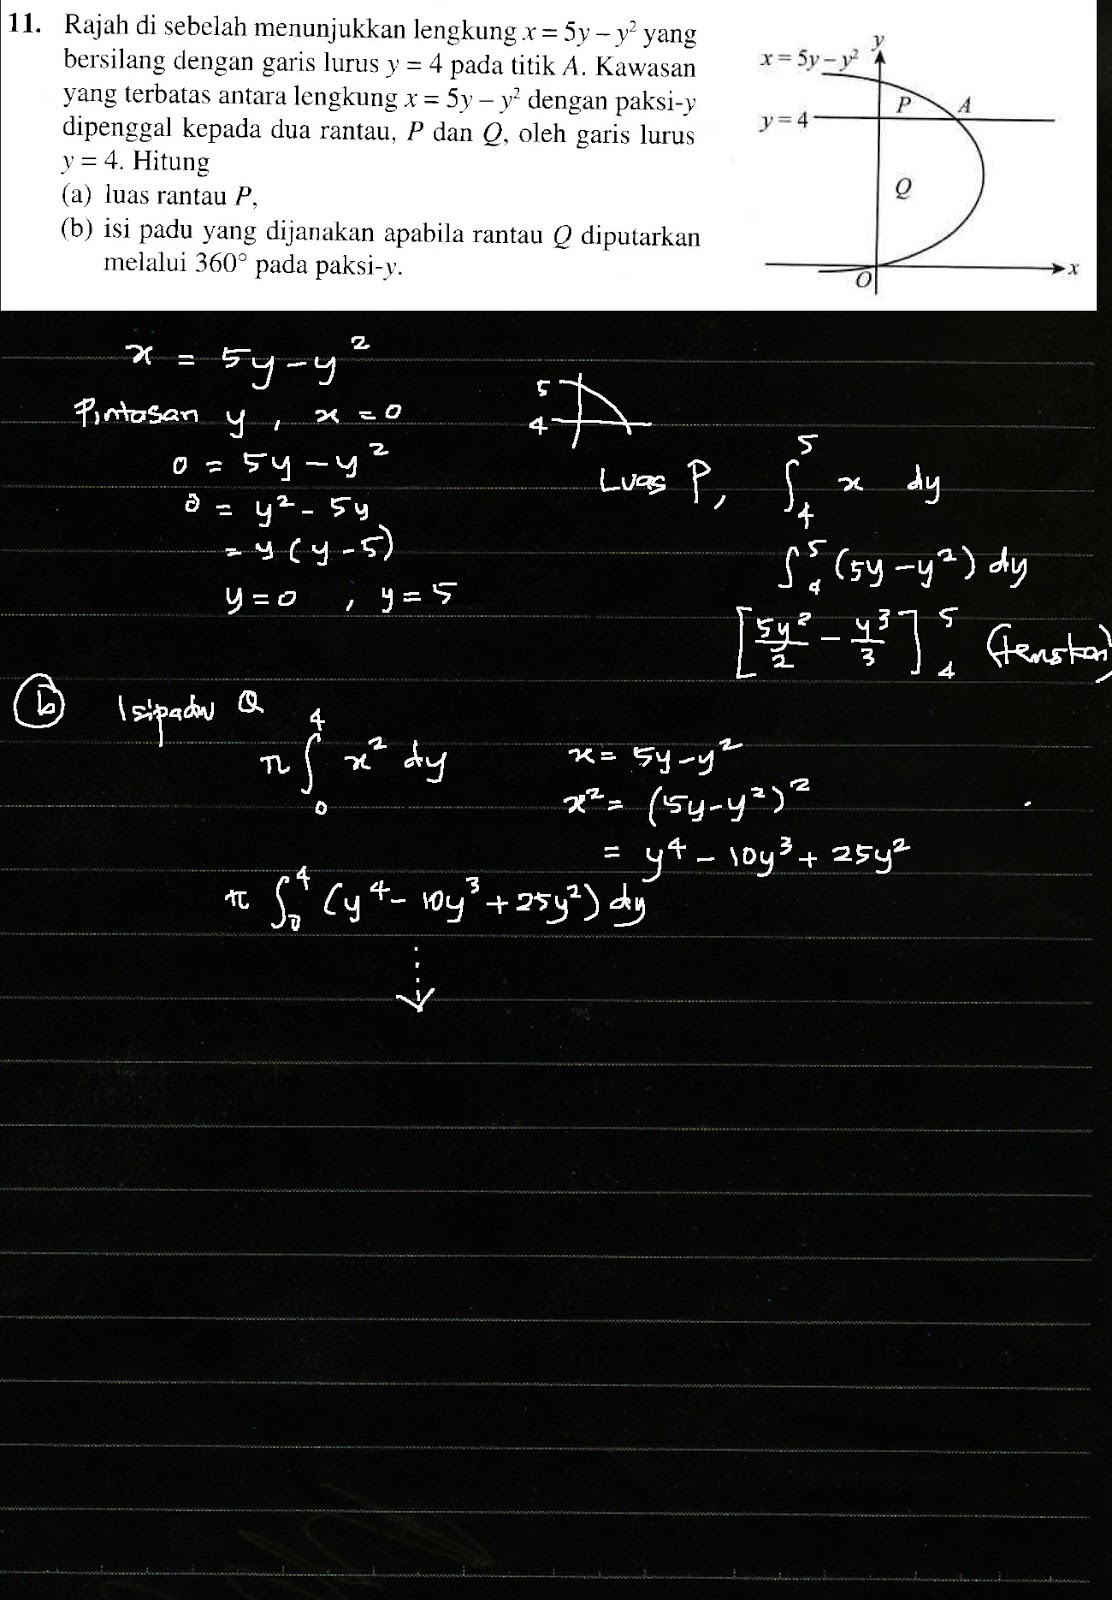 11. Rajah di sebelah menunjukkan lengkung x = 5y – y² yang
bersilang dengan garis lurus y = 4 pada titik A. Kawasan
yang terbatas antara lengkung x = 5y – y² dengan paksi-y
dipenggal kepada dua rantau, P dan Q, oleh garis lurus
y = 4. Hitung
(a) luas rantau P,
(b) isi padu yang dijanakan apabila rantau Q diputarkan
melalui 360° pada paksi-y.
y
x = 5y – y²
P A
y = 4
Q
O x
x = 5y – y²
Pintasan y, x = 0
0 = 5y – y²
0 = y² – 5y
= y(y – 5)
y = 0, y = 5
5
4
Luas P, ∫₄⁵ x dy
∫₄⁵ (5y – y²) dy
[5y²/2 – y³/3]₄⁵ (teruskan)
(b) Isipadu Q
π ∫₀⁴ x² dy
x = 5y – y²
x² = (5y – y²)²
= y⁴ – 10y³ + 25y²
π ∫₀⁴ (y⁴ – 10y³ + 25y²) dy